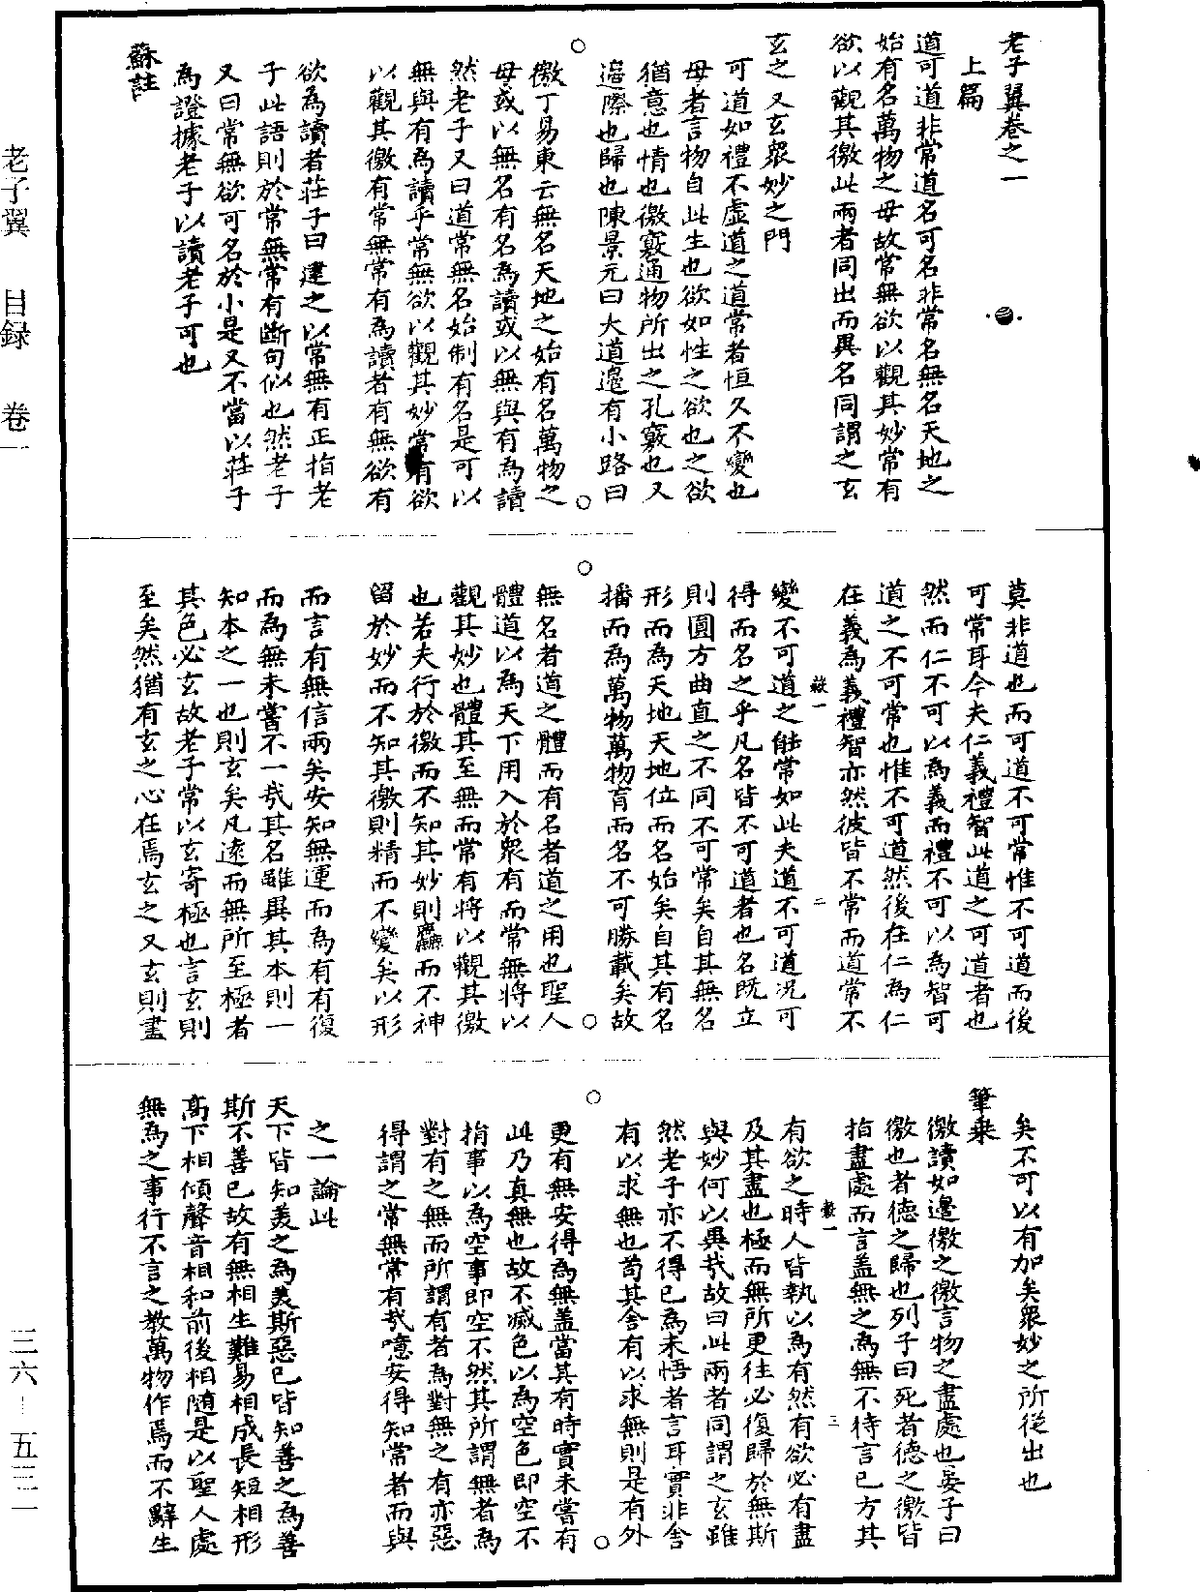 老子翼卷之一
上篇
道可道非常道名可名非常名無名天地之
始有名萬物之母故常無欲以觀其妙常有
欲以觀其徼此兩者同出而異名同謂之玄
玄之又玄衆妙之門
可道如禮不虛道之道常者恒久不變也
母者言物自此生也欲如性之欲也之欲
猶意也情也徼竅通物所出之孔竅也又
邉際也歸也陳景元曰大道邉有小路曰
徼丁易東云無名天地之始有名萬物之
母或以無名有名為讀或以無與有為讀
然老子又曰道常無名始制有名是可以
無與有為讀乎常無欲以觀其妙常有欲
以觀其徼有常無常有為讀者有無欲有
欲為讀者莊子曰建之以常無有正指老
子此語則於常無常有斷句似也然老子
又曰常無欲可名於小是又不當以莊子
為證據老子以讀老子可也
蘇註
莫非道也而可道不可常惟不可道而後
可常耳今夫仁義禮智此道之可道者也
然而仁不可以為義而禮不可以為智可
道之不可常也惟不可道然後在仁為仁
在義為義禮智亦然彼皆不常而道常不
變不可道之能常如此夫道不可道况可
得而名之乎凡名皆不可道者也名既立
則圓方曲直之不同不可常矣自其無名
形而為天地天地位而名始矣自其有名
播而為萬物萬物育而名不可勝載矣故
無名者道之體而有名者道之用也聖人
體道以為天下用入於衆有而常無將以
觀其妙也體其至無而常有將以觀其徼
也若夫行於徼而不知其妙則麤而不神
留於妙而不知其徼則精而不變矣以形
而言有無信兩矣安知無運而為有有復
而為無未嘗不一哉其名雖異其本則一
知本之一也則玄矣凡遠而無所至極者
其色必玄故老子常以玄寄極也言玄則
至矣然猶有玄之心在焉玄之又玄則盡
矣不可以有加矣衆妙之所從出也
筆乗
徼讀如邉徼之徼言物之盡處也晏子曰
徼也者德之歸也列子曰死者德之徼皆
指盡處而言盖無之為無不待言已方其
有欲之時人皆執以為有然有欲必有盡
及其盡也極而無所更往必復歸於無斯
與妙何以異哉故曰此兩者同謂之玄雖
然老子亦不得已為未悟者言耳實非舍
有以求無也苟其舍有以求無則是有外
更有無安得為無盖當其有時實未嘗有
此乃真無也故不滅色以為空色即空不
捐事以為空事即空不然其所謂無者為
對有之無而所謂有者為對無之有亦惡
得謂之常無常有哉噫安得知常者而與
之一論此
天下皆知美之為美斯惡已皆知善之為善
斯不善已故有無相生難易相成長短相形
高下相傾聲音相和前後相隨是以聖人處
無為之事行不言之教萬物作焉而不辭生
老子翼 目録 卷一
三六-五三二